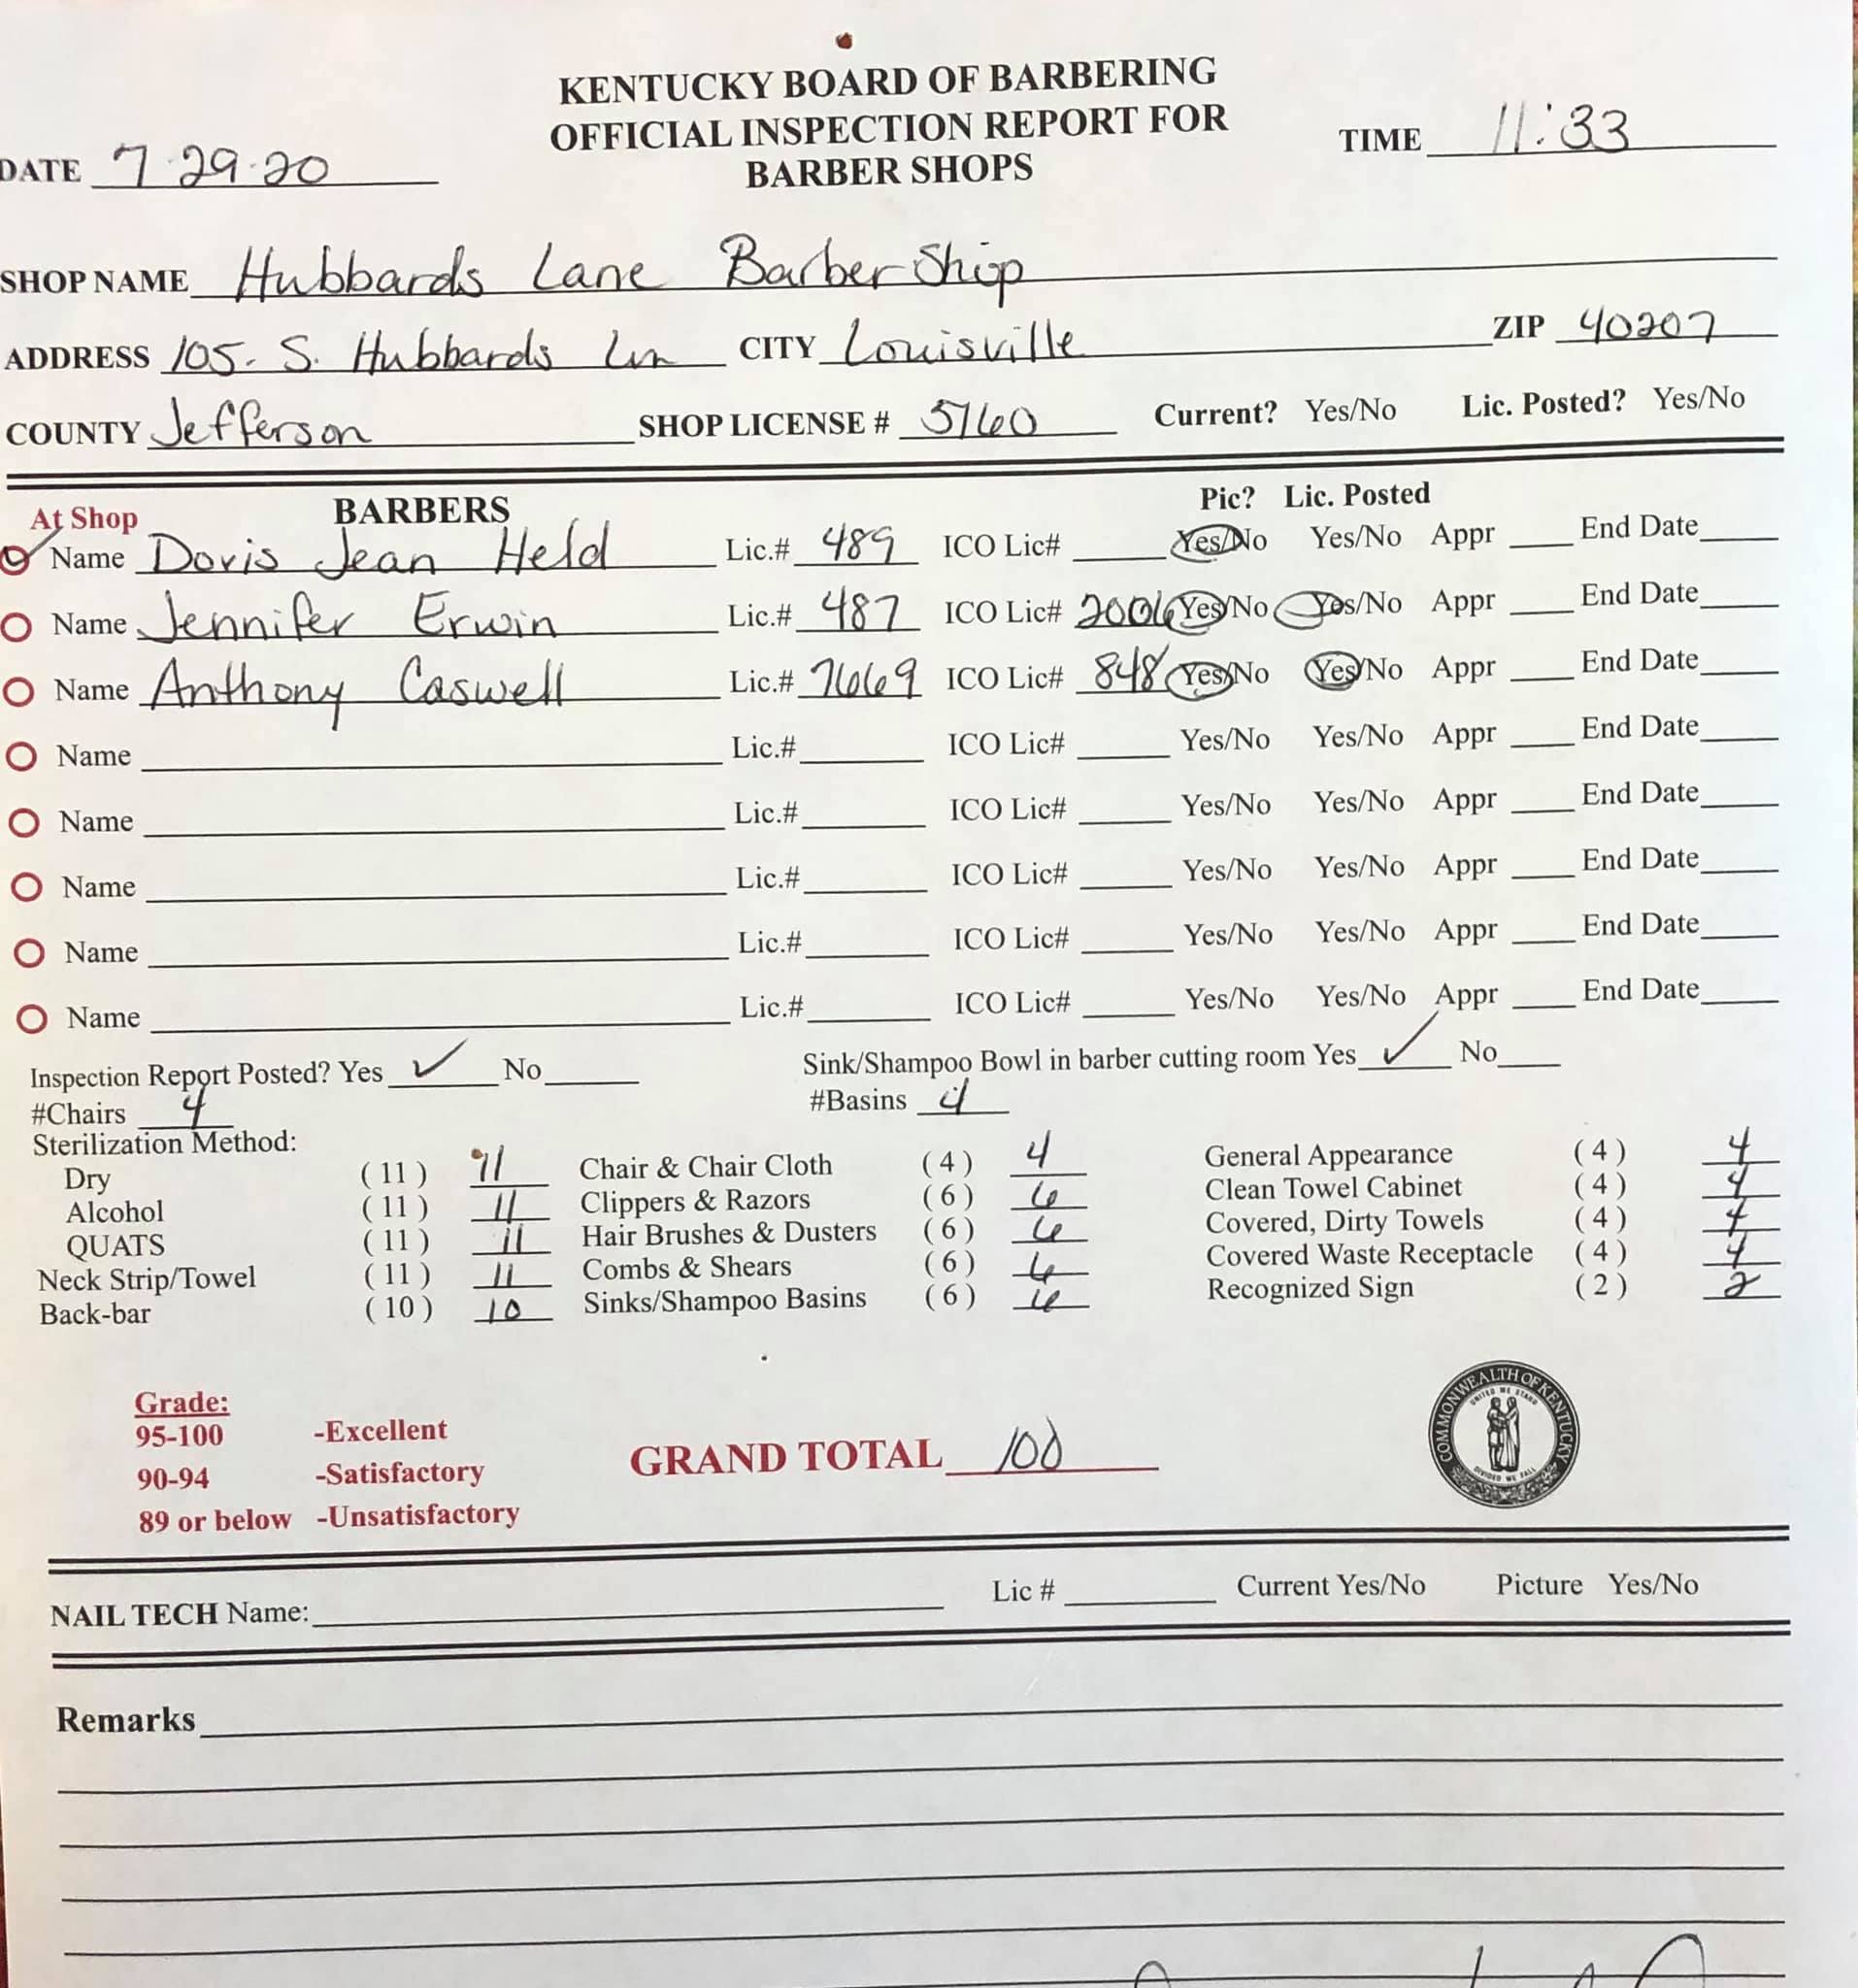 KENTUCKY BOARD OF BARBERING
OFFICIAL INSPECTION REPORT FOR
BARBER SHOPS
DATE 7-29-20 TIME 11:33
SHOP NAME Hubbards Lane Barber Shop
ADDRESS 105. S. Hubbards Ln CITY Louisville ZIP 40207
COUNTY Jefferson SHOP LICENSE # 5160 Current? Yes/No Lic. Posted? Yes/No
At Shop BARBERS Pic? Lic. Posted
Name Doris Jean Held Lic.# 489 ICO Lic# Yes/No Yes/No Appr End Date
Name Jennifer Erwin Lic.# 487 ICO Lic# 2006 Yes/No Yes/No Appr End Date
Name Anthony Caswell Lic.# 7669 ICO Lic# 848 Yes/No Yes/No Appr End Date
Name Lic.# ICO Lic# Yes/No Yes/No Appr End Date
Name Lic.# ICO Lic# Yes/No Yes/No Appr End Date
Name Lic.# ICO Lic# Yes/No Yes/No Appr End Date
Name Lic.# ICO Lic# Yes/No Yes/No Appr End Date
Name Lic.# ICO Lic# Yes/No Yes/No Appr End Date
Inspection Report Posted? Yes ✓ No Sink/Shampoo Bowl in barber cutting room Yes ✓ No
#Chairs 4 #Basins 4
Sterilization Method:
Dry (11) 11 Chair & Chair Cloth (4) 4 General Appearance (4) 4
Alcohol (11) 11 Clippers & Razors (6) 6 Clean Towel Cabinet (4) 4
QUATS (11) 11 Hair Brushes & Dusters (6) 6 Covered, Dirty Towels (4) 4
Neck Strip/Towel (11) 11 Combs & Shears (6) 6 Covered Waste Receptacle (4) 4
Back-bar (10) 10 Sinks/Shampoo Basins (6) 6 Recognized Sign (2) 2
Grade:
95-100 -Excellent
90-94 -Satisfactory
89 or below -Unsatisfactory
GRAND TOTAL 100
COMMONWEALTH OF KENTUCKY
UNITED WE STAND
DIVIDED WE FALL
NAIL TECH Name: Lic # Current Yes/No Picture Yes/No
Remarks